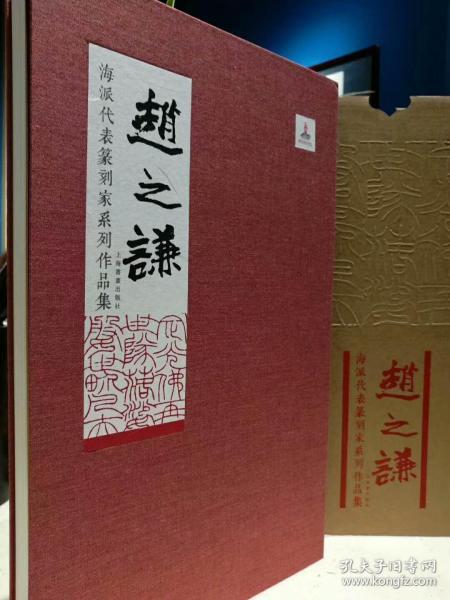 海派代表篆刻家系列作品集
趙之謙
上海書畫出版社
趙之謙
海派代表篆刻家系列作品集
孔夫子旧书网
www.kongfz.com